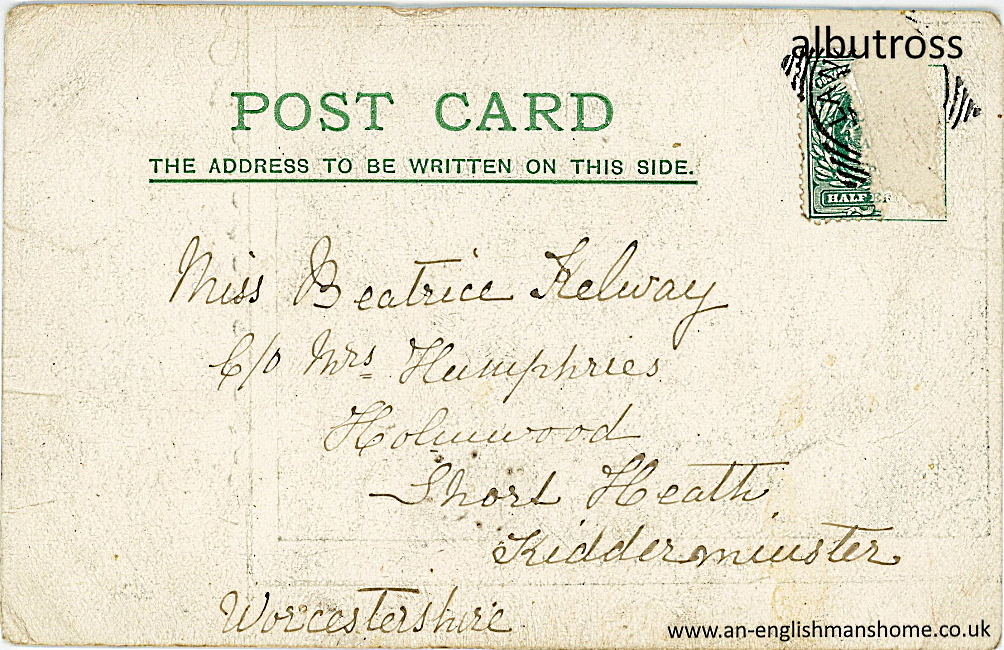 albutross
POST CARD
THE ADDRESS TO BE WRITTEN ON THIS SIDE.
HALF
Miss Beatrice Kelway
C/o Mrs Humphries
Holmwood
Short Heath
Kidderminster
Worcestershire
www.an-englishmanshome.co.uk